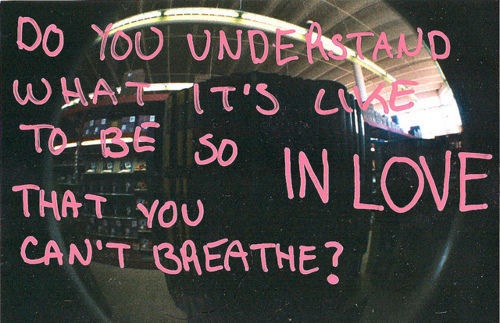 DO YOU UNDERSTAND
WHAT IT'S LIKE
TO BE SO
IN LOVE
THAT YOU
CAN'T BREATHE?